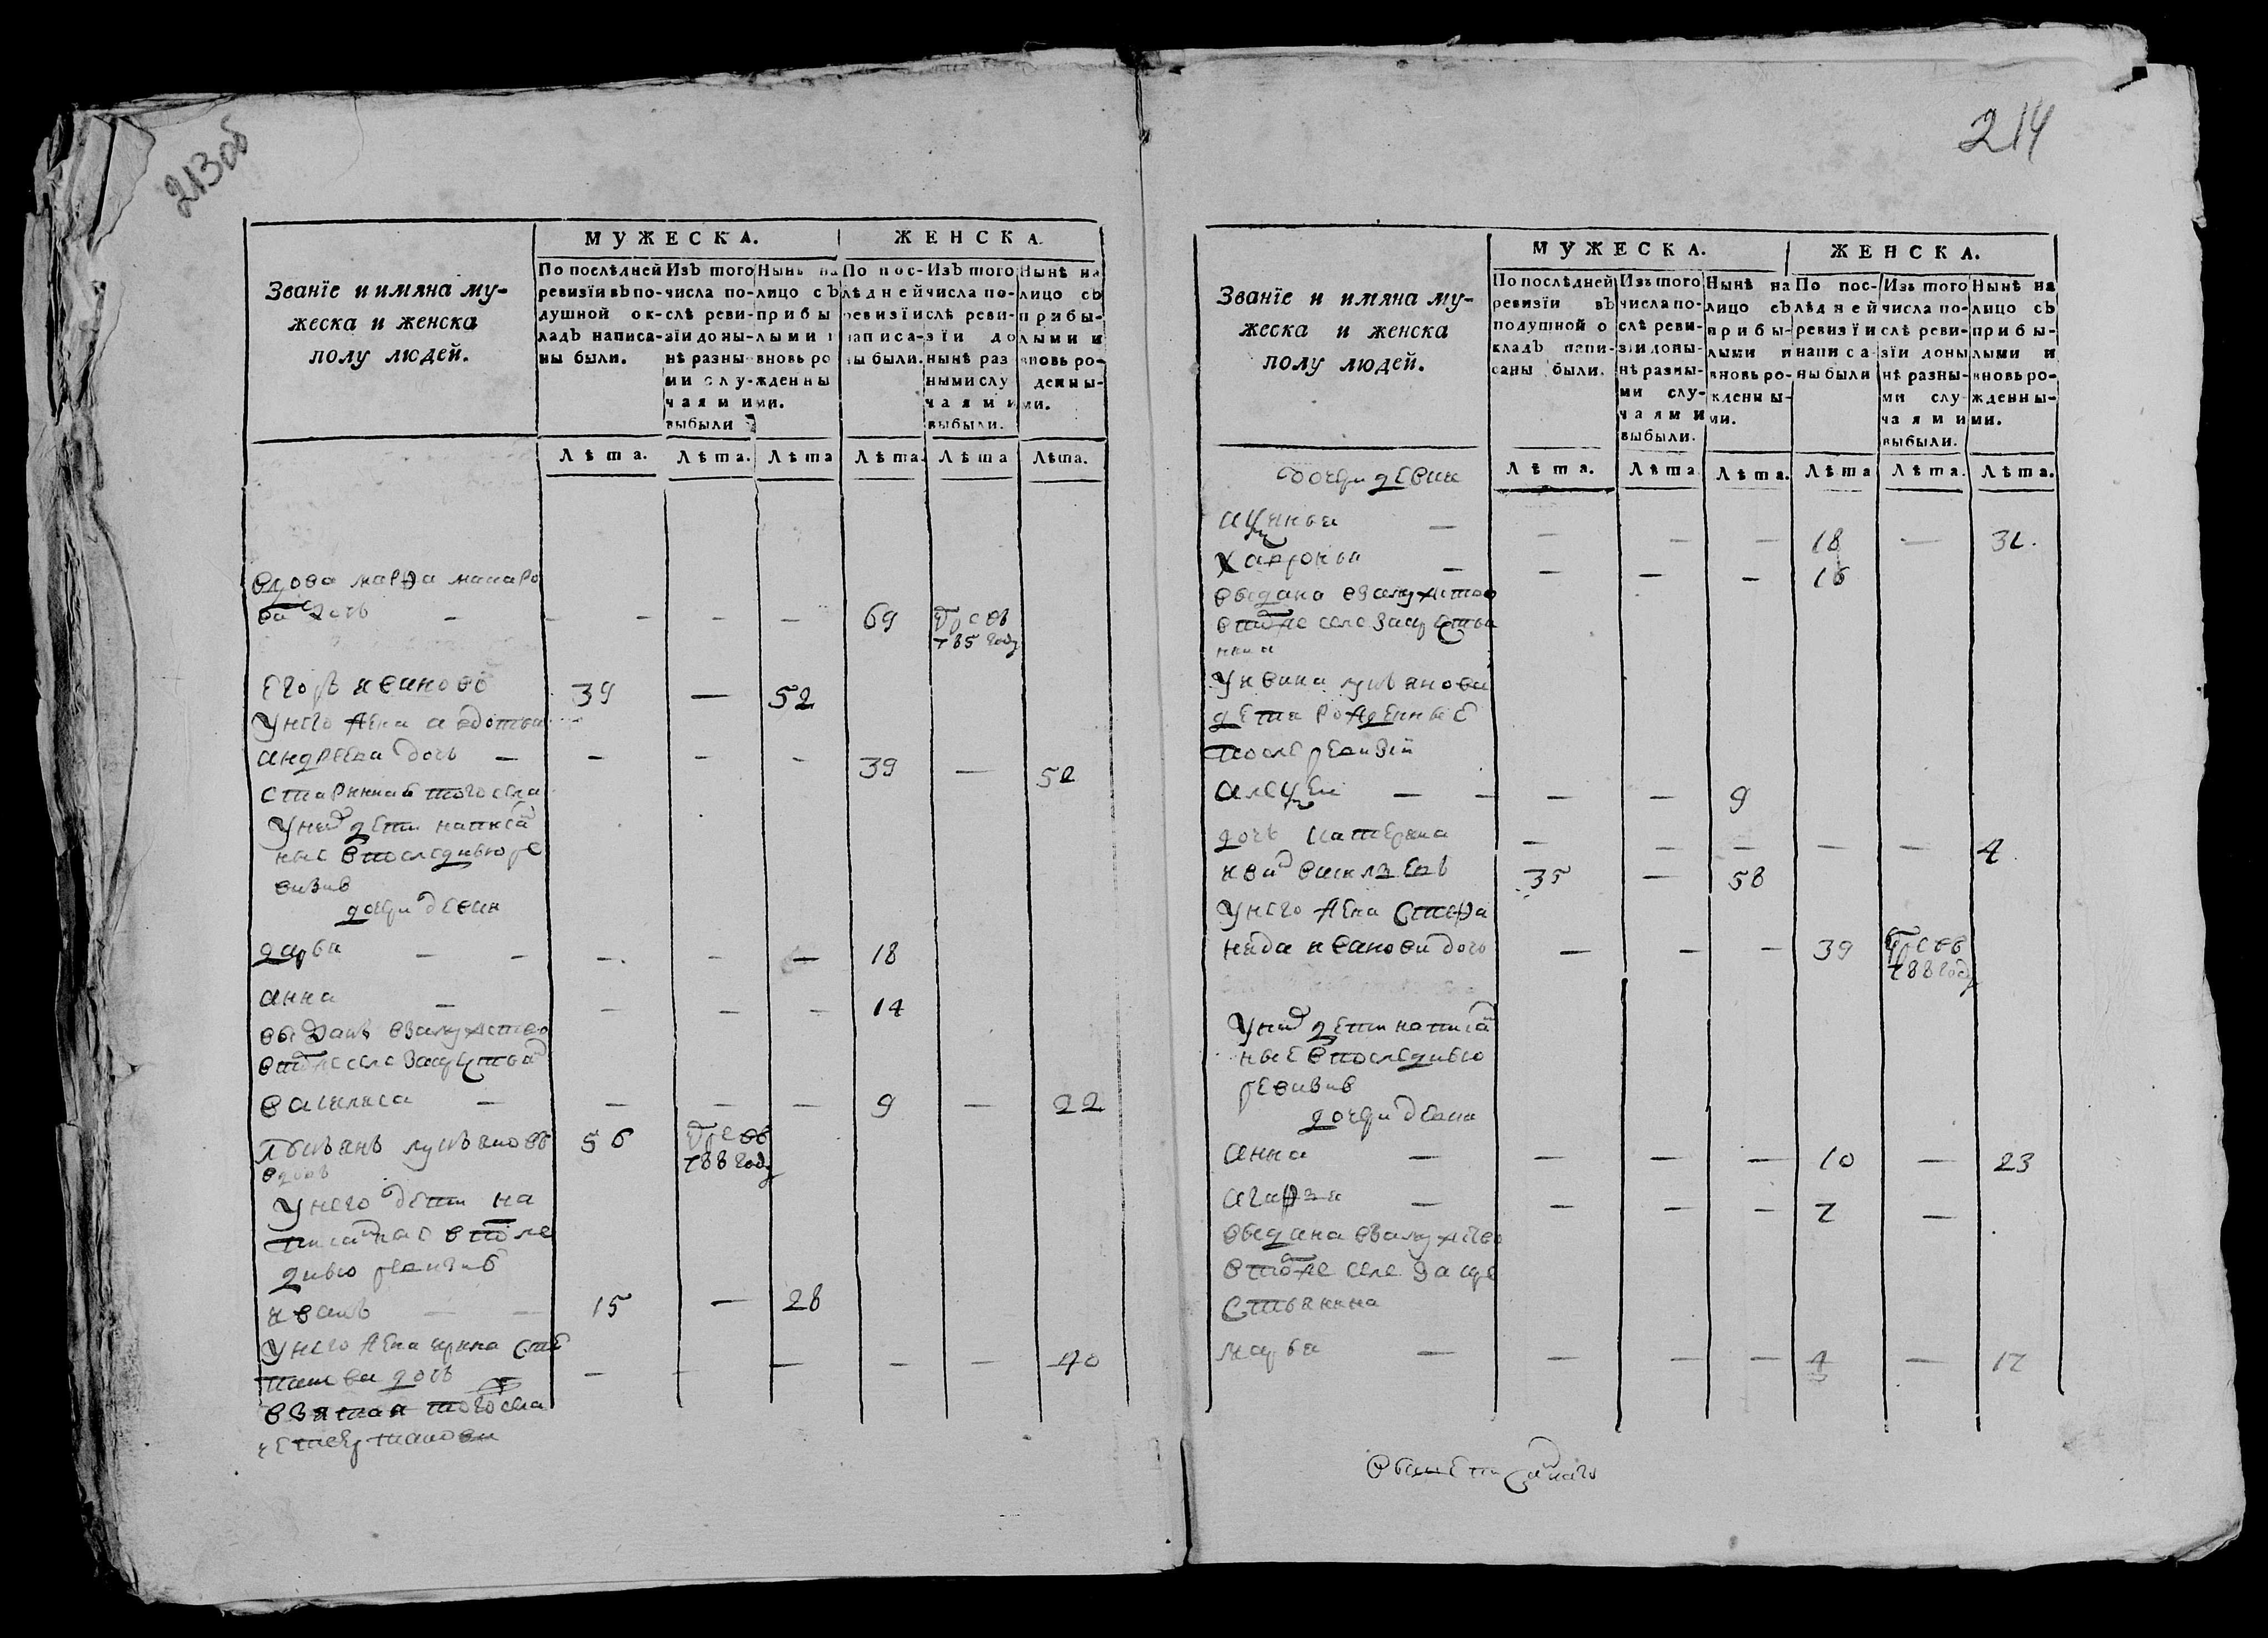 213об
МУЖЕСКА. ЖЕНСКА.
Званїе и имяна му-
жеска и женска
полу людей.
По послѣдней ревизїи въ по-душной ок-ладъ написа-ны были.
Изъ того числа по-слѣ реви-зїи до ны-нѣ разны-ми слу-чаями выбыли
Нынѣ на лицо съ прибы лыми и вновь ро жденны ми.
По пос-лѣдней ревизїи написа-ны были.
Изъ того числа по-слѣ реви-зїи до нынѣ раз ными слу чаями выбыли.
Нынѣ на лицо съ прибы-лыми и вновь ро-жденны-ми.
Лѣта. Лѣта. Лѣта Лѣта. Лѣта Лѣта.
вдова марѳа макаро
ва дочь — — — — — 69
785 году
Егоръ ивановъ 39 — 52
у него жена авдотья
андреева дочь — — — — 39 — 52
старинная того села
у них дети написа
ные в последнюю ре
визию
дочери девки
дарья — — — — — 18
анна — — — — 14
выдана в замужство
в том же селе за крестьян
василиса — — — — 9 — 22
лукьяновъ 56
788 году
вдовъ
у него дети на
писанные в после
днюю ревизию
иванъ — — 15 — 28
у него жена ирина сте
дочь — — — — — 40
взятая того села
214
МУЖЕСКА. ЖЕНСКА.
Званїе и имяна му-
жеска и женска
полу людей.
По послѣдней ревизїи въ подушной о кладъ напи-саны были.
Изъ того числа по-слѣ реви-зїи до ны-нѣ разны-ми слу-чаями выбыли.
Нынѣ на лицо съ прибы-лыми и вновь ро-жденны-ми.
По пос-лѣдней ревизїи написа-ны были
Изъ того числа по-слѣ реви-зїи до ны нѣ разны-ми слу-чаями выбыли.
Нынѣ на лицо съ прибы-лыми и вновь ро-жденны-ми.
Лѣта. Лѣта Лѣта. Лѣта Лѣта. Лѣта.
дочери девки
— — — — 18 — 31.
— — — — 16
выдана в замужство
в том же селе за крестья
нина
у ивана лукьянова
дети рожденные
после ревизии
алексеи — — — — 9
дочь катерина — — — — — 4
васильевъ 35 — 58
у него жена степа
нида иванова дочь — — — 39
788 году
у них дети написа
ные в последнюю
ревизию
дочери девки
анна — — — — 10 — 23
агафья — — — — 7 —
выдана в замужство
в том же селе за кре
стьянина
марья — — — — 4 — 17